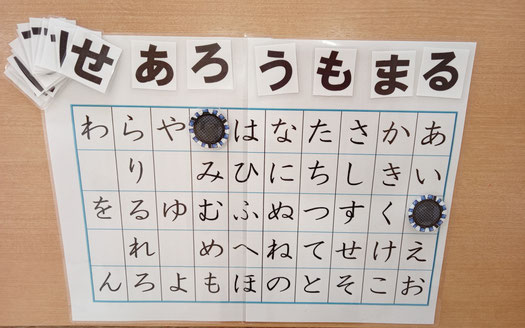 せ あ ろ う も ま る
あ い え お
か き く け こ
さ し す せ そ
た ち つ て と
な に ぬ ね の
は ひ ふ へ ほ
み む め も
や ゆ よ
ら り る れ ろ
わ を ん